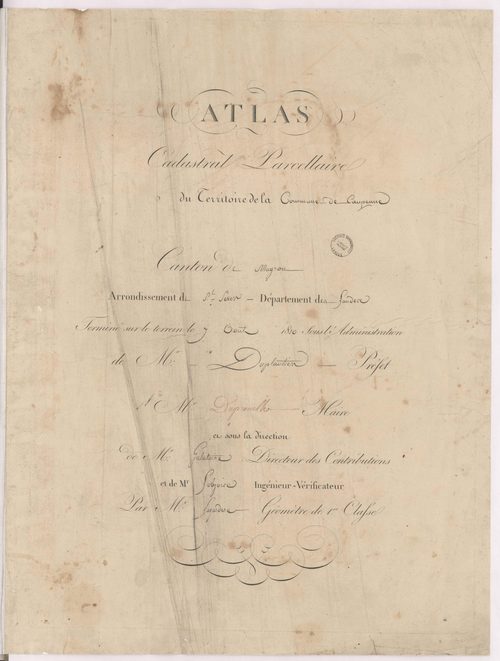 ATLAS
Cadastral Parcellaire
du Territoire de la Commune de Caupenne
Canton de Mugron
Arrondissement de St. Sever – Département des Landes
Terminé sur le terrein le 7 Aout 1810 Sous l'Administration
de Mr. Duplantier – Préfet
Mr. Maire
et sous la direction
de Mr. Directeur des Contributions
et de Mr Ingénieur-Vérificateur
Par Mr. Géomètre de 1re Classe